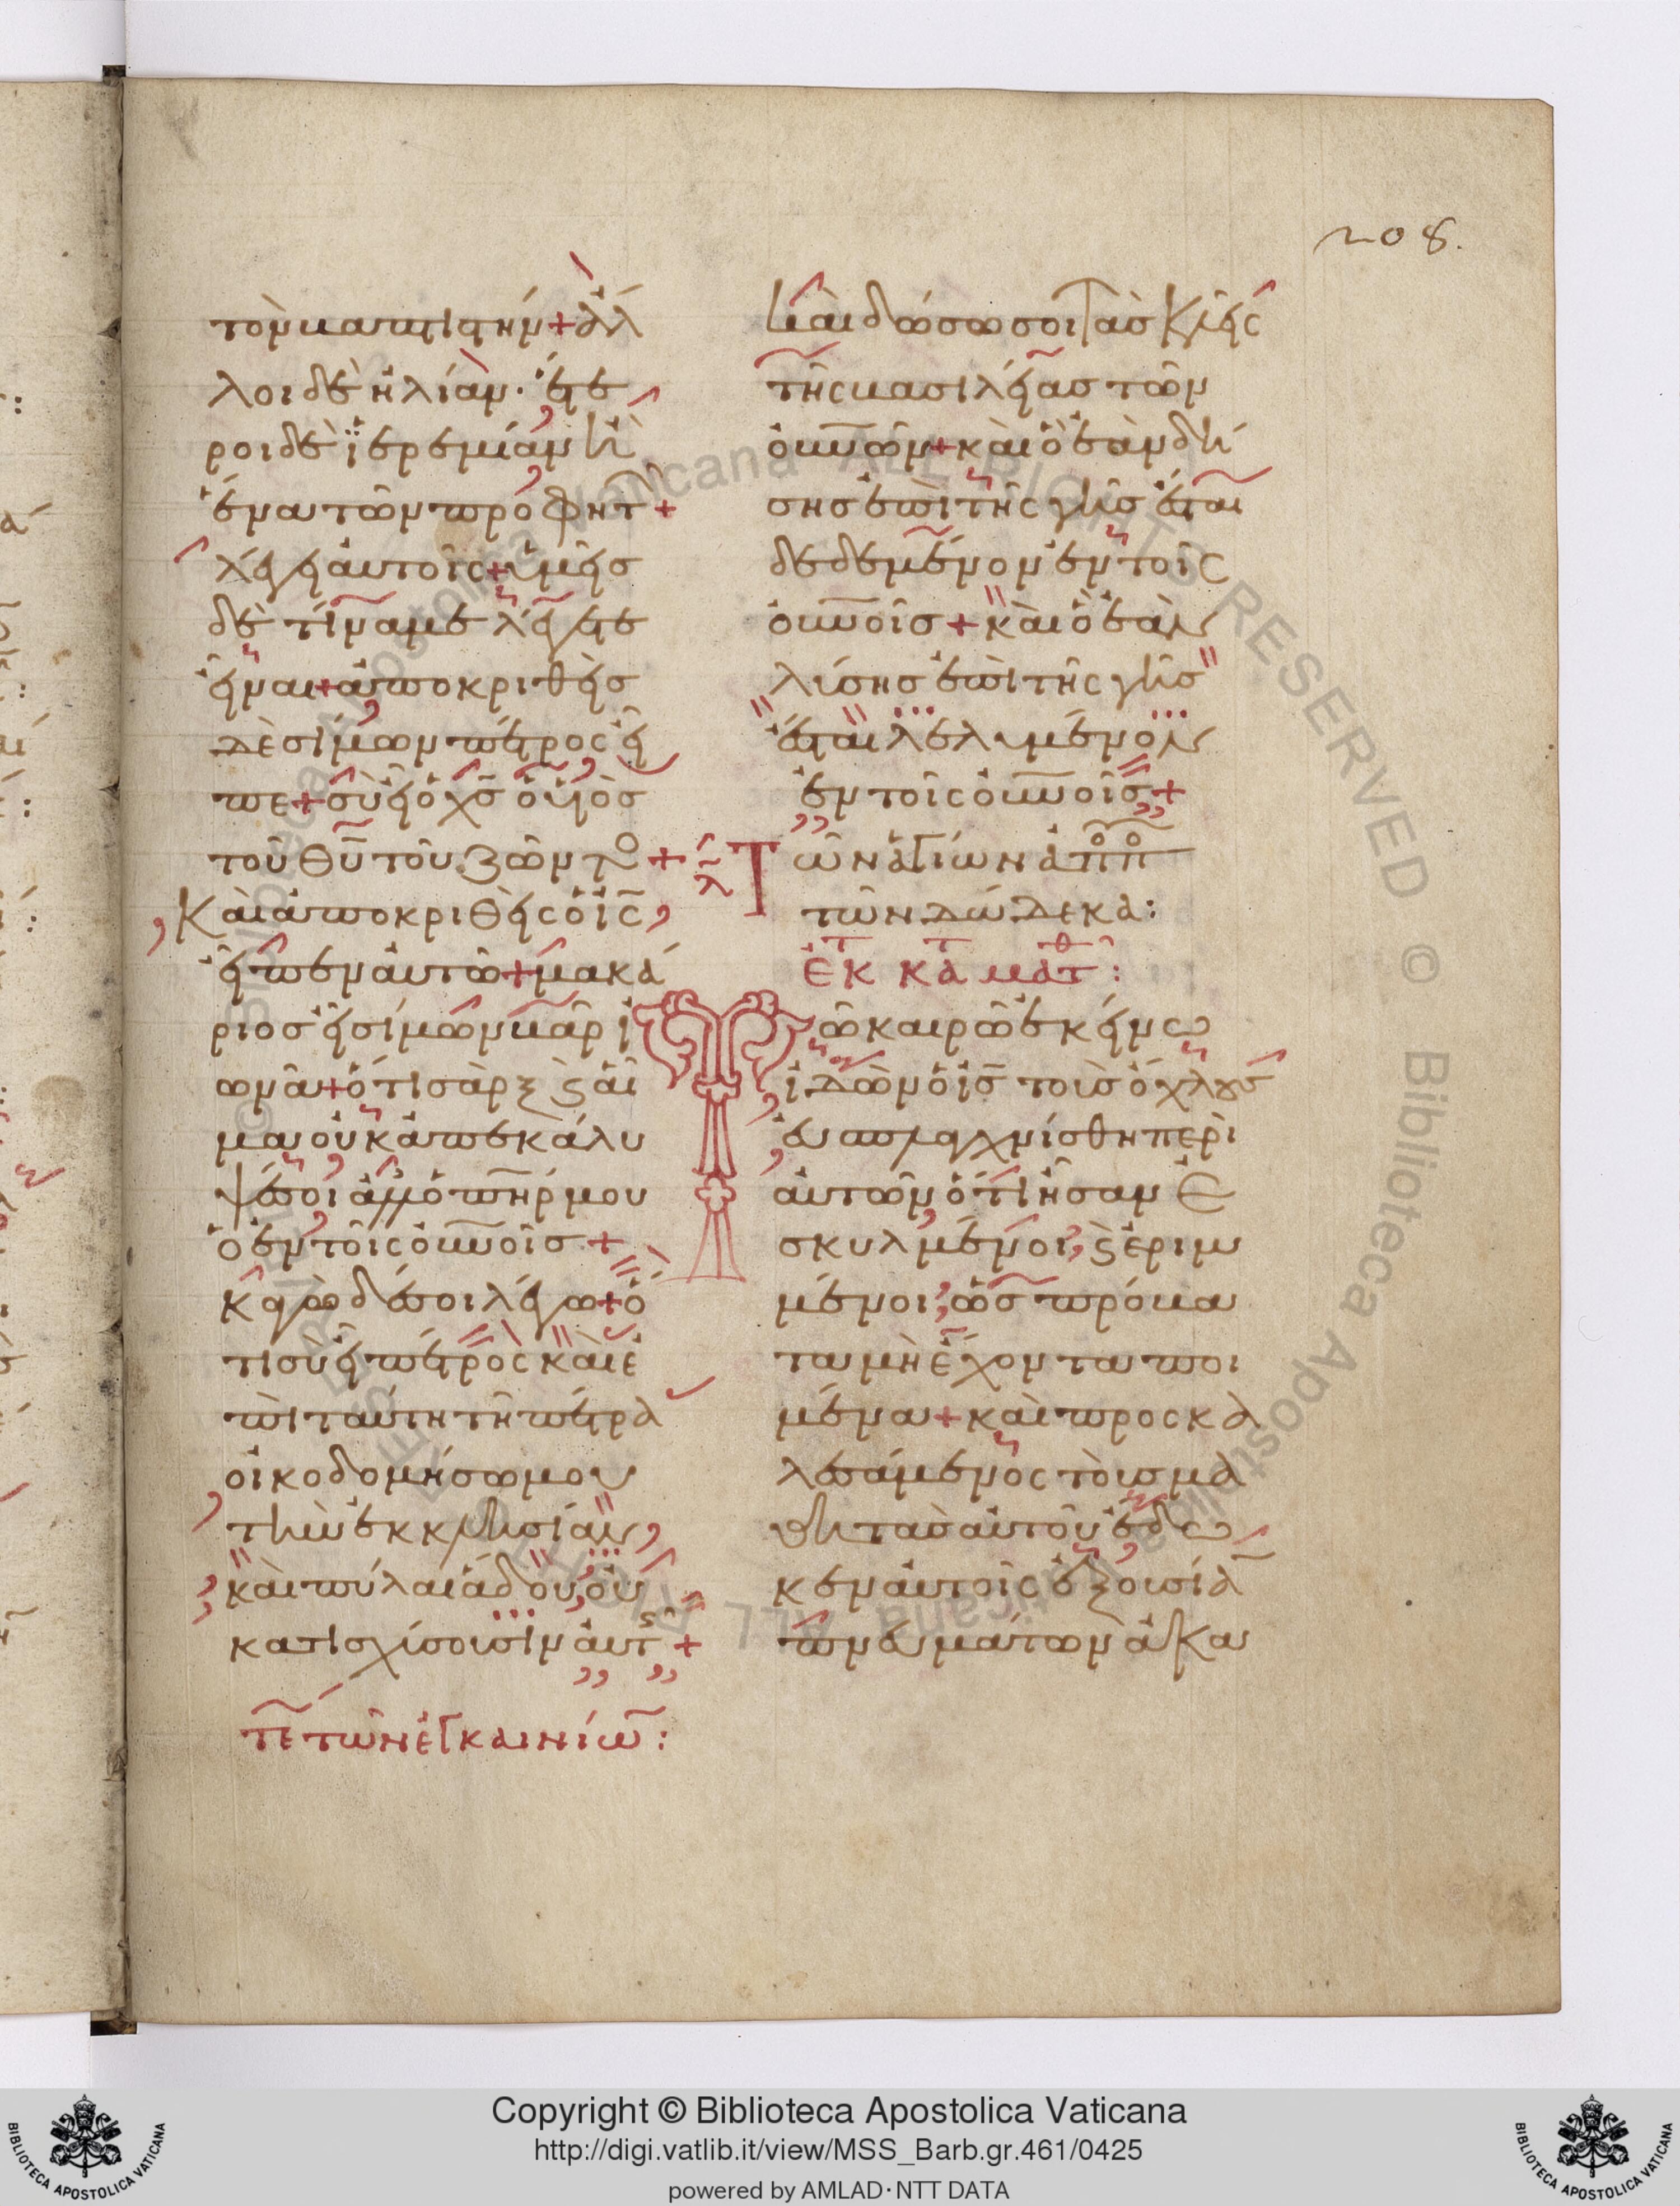 208.
τὸν βαπτιστήν + ἄλ
λοι δὲ ἠλίαν· ἕτε
ροι δὲ ϊερεμίαν ἢ
ἕνα τῶν προφητ +
λέγει αὐτοῖς + ὑμεῖς
δὲ τίνα με λέγετε
εἶναι + ἀποκριθεὶς
δὲ σίμων πέτρος εἶ
πε + σὺ εἶ ὁ χς ὁ υἱὸς
τοῦ θυ τοῦ ζῶντο +
Καὶ ἀποκριθεὶς ὁ ις
εἶπεν αὐτῶ + μακά
ριος εἶ σίμων βὰρ ἰ
ωνᾶ + ὅτι σὰρξ ϗ αἷ
μα οὐκ ἀπεκάλυ
ψέ σοι ἀλλ ὁ πηρ μου
ὁ ἐν τοῖς οὐνοῖς +
κἀγὼ δέ σοι λέγω + ὅ
τι σὺ εἶ πέτρος καὶ ἐ
πὶ ταύτη τῆ πέτρα
οἰκοδομήσω μου
τὴν ἐκκλησίαν
καὶ πύλαι ἅδου οὐ
κατισχύσουσιν αὐτ +
τε τῶν ἐγκαινίω :
καὶ δώσω σοι τὰς κλεῖς
τῆς βασιλείας τῶν
οὐνῶν + καὶ ὃ ἐὰν δή
σης ἐπὶ τῆς γῆς ἔσται
δεδεμένον ἐν τοῖς
οὐνοῖς + καὶ ὃ ἐὰν
λύσης ἐπὶ τῆς γῆς
ἔσται λελυμένον
ἐν τοῖς οὐνοῖς +
λ Τῶν ἁγίων ἀπο
τῶν δώδεκα :
ἐκ κατὰ ματθ :
Τῶ καιρῶ ἐκείνω
ἰδὼν ὁ ις τοὺς ὄχλους
ἐυσπλαγχνίσθη περὶ
αὐτῶν ὅτι ἦσαν ἐ
σκυλμένοι ϗ ἐριμ
μένοι ὡς πρόβα
τα μὴ ἔχοντα ποι
μένα + καὶ προσκα
λεσάμενος τοὺς μα
θητὰς αὐτοῦ ἔδω
κεν αὐτοῖς ἐξουσία
πνευμάτων ἀκα
Copyright © Biblioteca Apostolica Vaticana
http://digi.vatlib.it/view/MSS_Barb.gr.461/0425
powered by AMLAD·NTT DATA
BIBLIOTECA APOSTOLICA VATICANA
BIBLIOTECA APOSTOLICA VATICANA